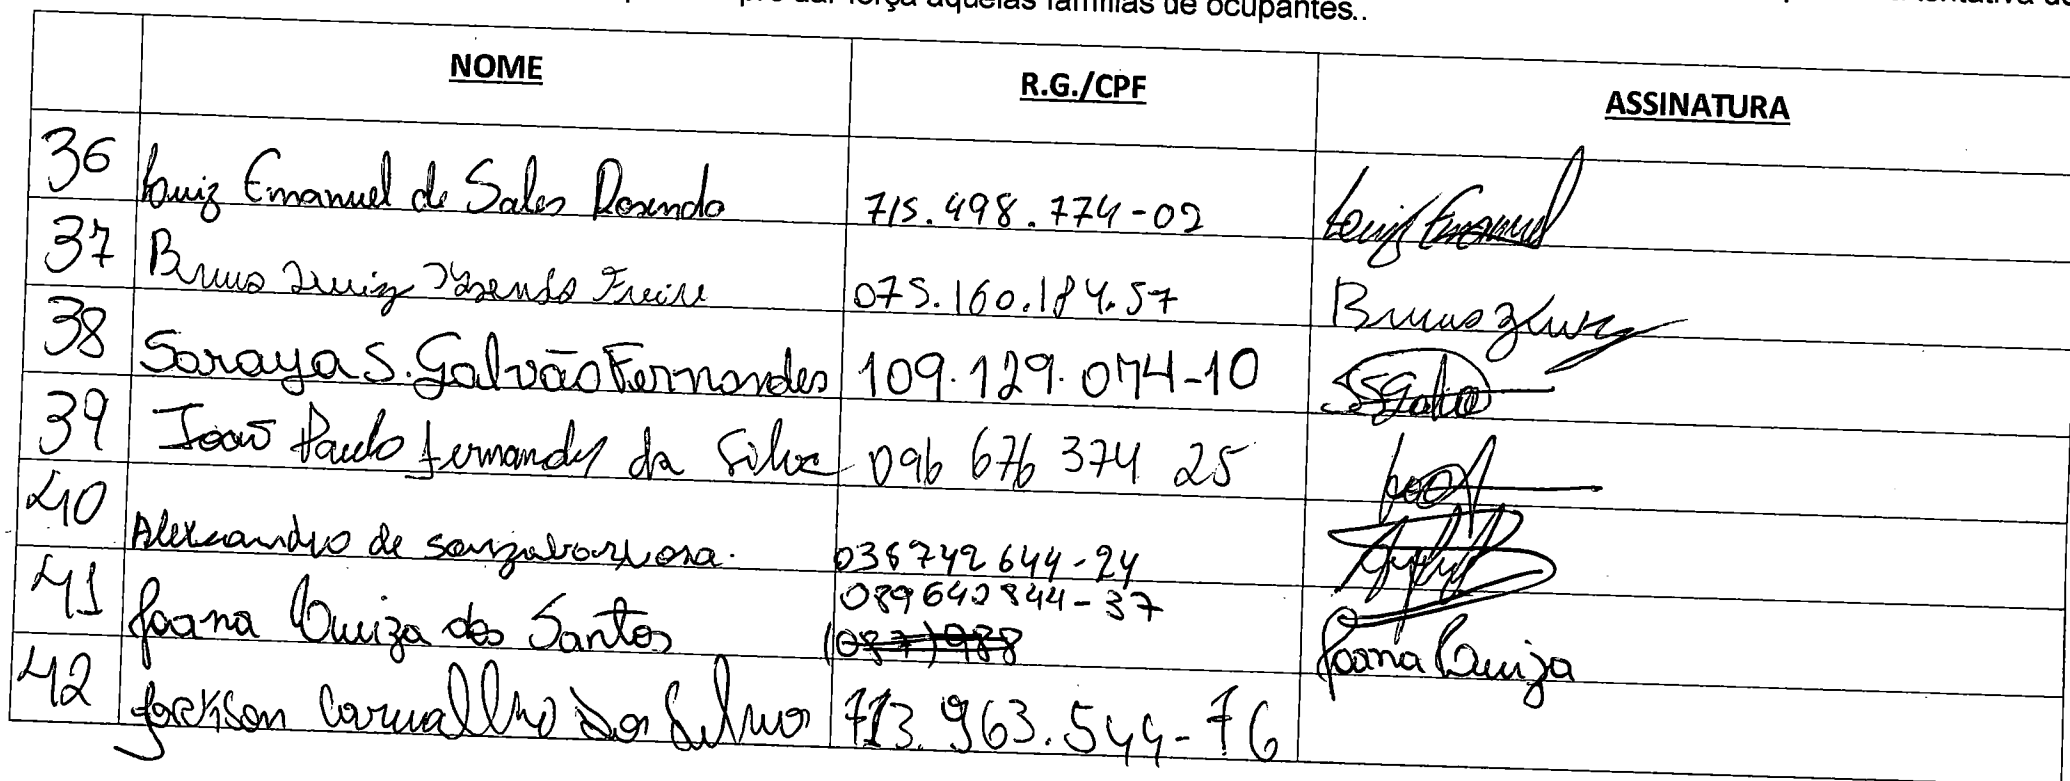 dar força aquelas famílias de ocupantes..
NOME R.G./CPF ASSINATURA
36 Luiz Emanuel de Sales Rosendo 715.498.774-02 Luiz Emanuel
37 Bruno Luiz Rosendo Freire 075.160.184.57 Bruno Luiz
38 Soraya S. Galvão Fernandes 109.129.074-10
39 João Paulo Fernandes da Silva 096 676 374 25
40 Alexsandro de souza barbosa. 036742644-24
41 Joana Luiza dos Santos 089642844-37 Joana Luiza
(087)988
42 Jackson Carvalho da Silva 713.963.544-76